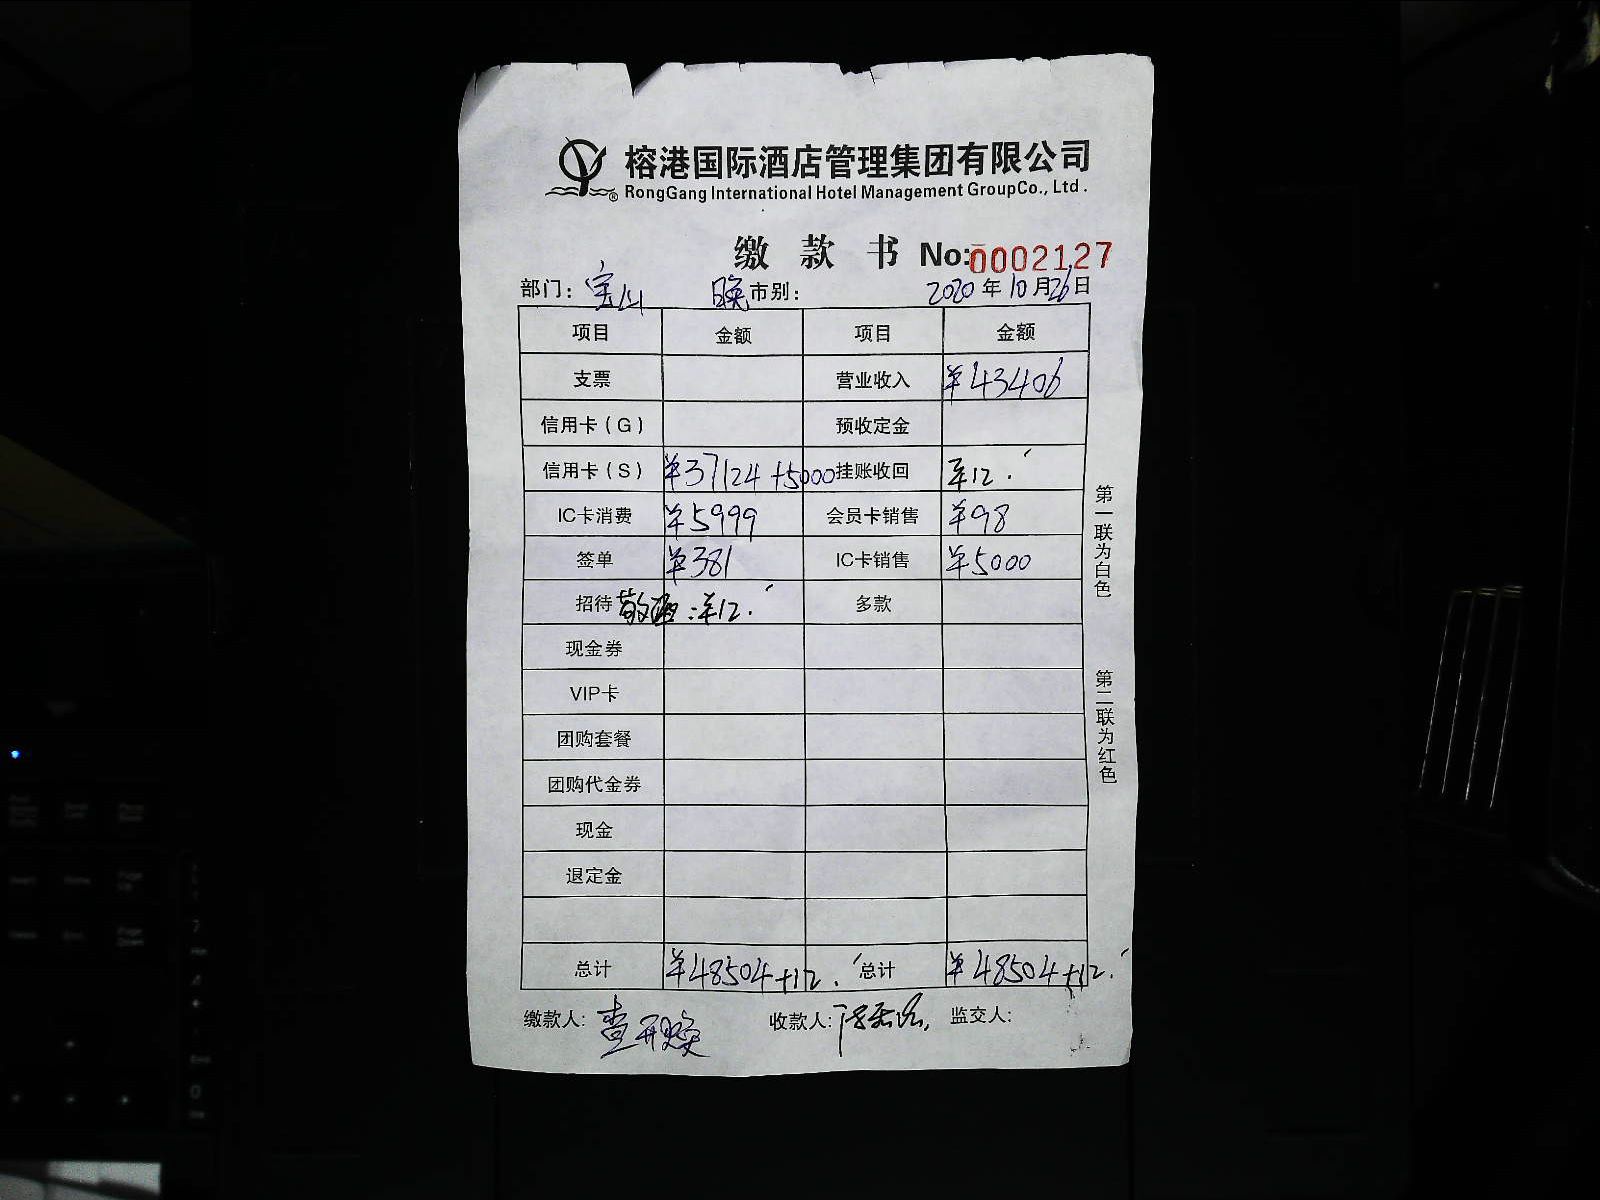 榕港国际酒店管理集团有限公司
RongGang International Hotel Management GroupCo., Ltd.
缴款书 No:0002127
部门: 宝山 晚 市别: 2020年10月26日
项目 金额 项目 金额
支票 营业收入 ¥43406
信用卡(G) 预收定金
信用卡(S) ¥37124+5000 挂账收回 ¥12.
IC卡消费 ¥5999 会员卡销售 ¥98
签单 ¥381 IC卡销售 ¥5000
招待 :¥12. 多款
现金券
VIP卡
团购套餐
团购代金券
现金
退定金
总计 ¥48504+12. 总计 ¥48504+12.
缴款人: 收款人: 监交人:
第一联为白色
第二联为红色